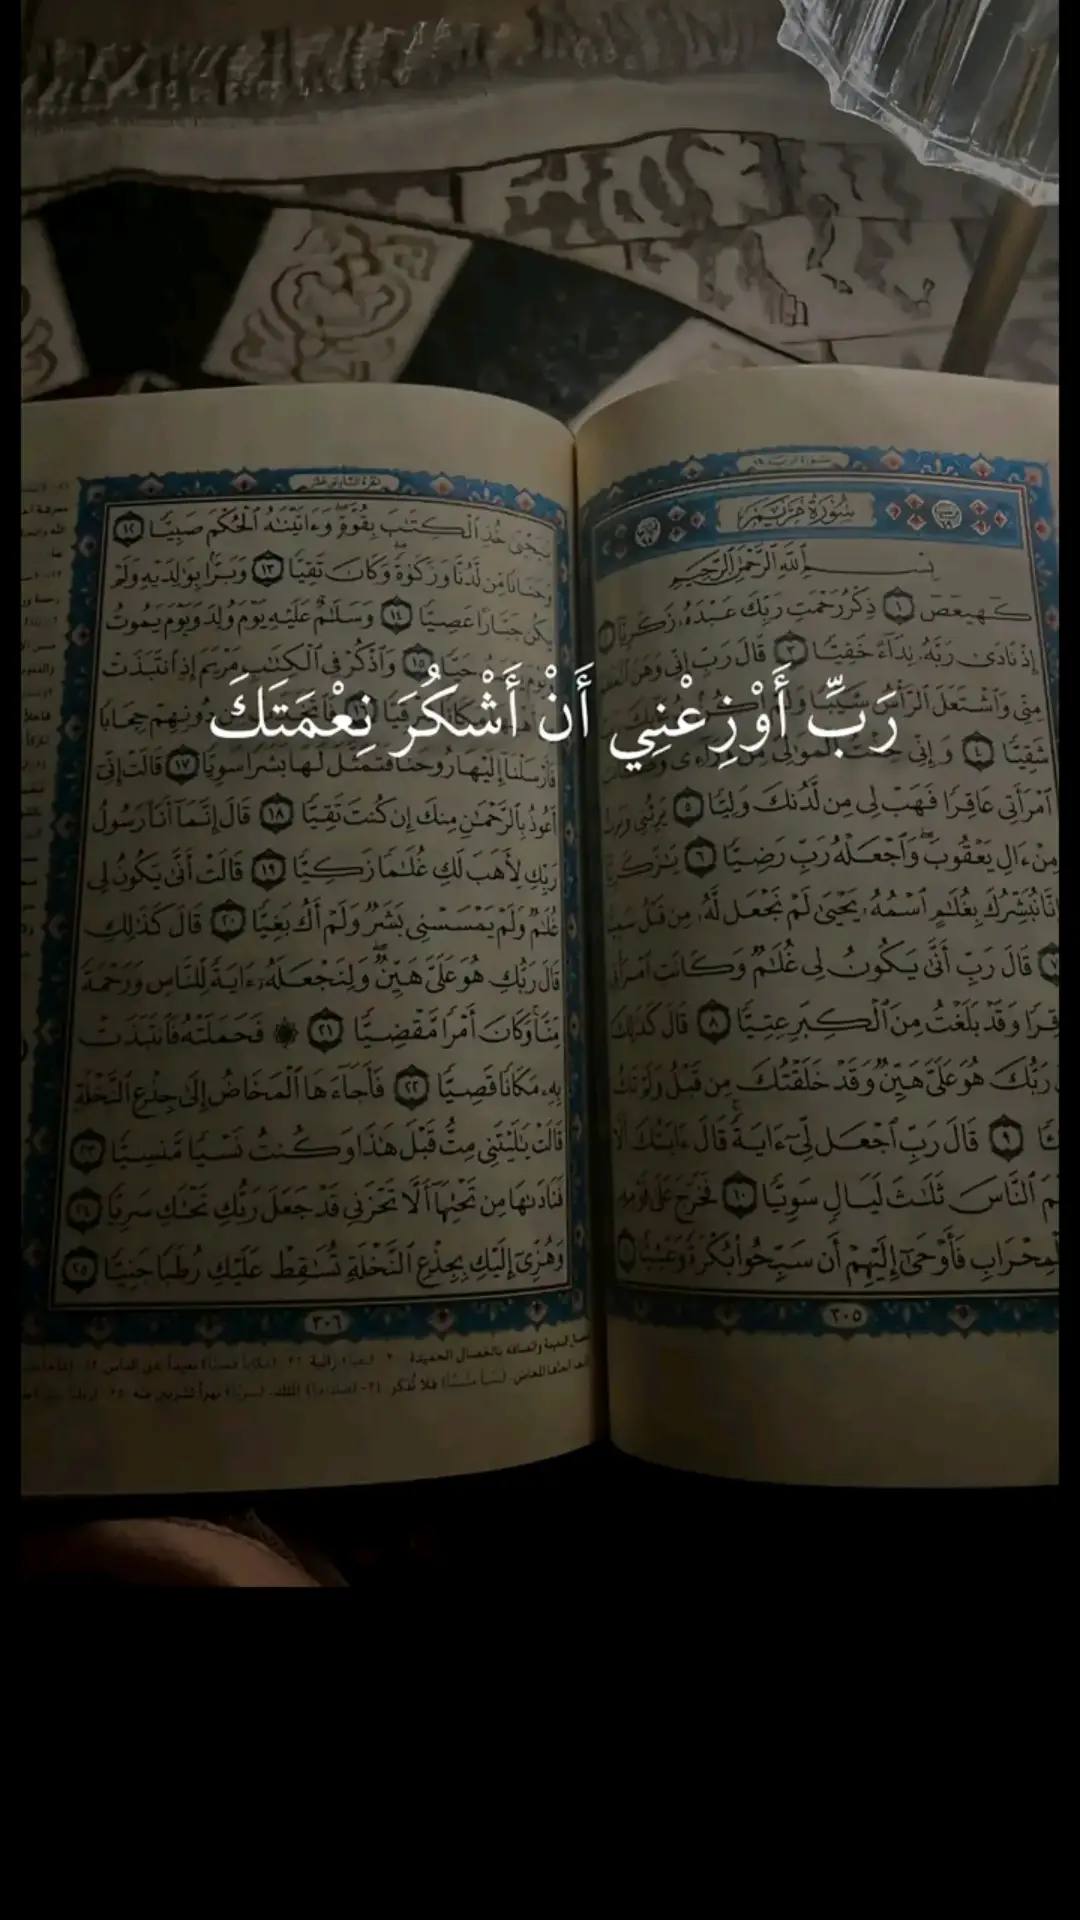 رَبِّ أَوْزِعْنِي أَنْ أَشْكُرَ نِعْمَتَكَ
سُورَةُ مَرْيَمَ
بِسْمِ ٱللَّهِ ٱلرَّحْمَٰنِ ٱلرَّحِيمِ
كٓهيعٓصٓ ١ ذِكْرُ رَحْمَتِ رَبِّكَ عَبْدَهُۥ زَكَرِيَّآ ٢
إِذْ نَادَىٰ رَبَّهُۥ نِدَآءً خَفِيًّا ٣ قَالَ رَبِّ إِنِّى وَهَنَ ٱلْعَظْمُ
مِنِّى وَٱشْتَعَلَ ٱلرَّأْسُ شَيْبًا وَلَمْ أَكُنۢ
شَقِيًّا ٤ وَإِنِّى خِفْتُ ٱلْمَوَٰلِىَ مِن وَرَآءِى وَكَانَتِ
ٱمْرَأَتِى عَاقِرًا فَهَبْ لِى مِن لَّدُنكَ وَلِيًّا ٥ يَرِثُنِى وَيَرِثُ
مِنْ ءَالِ يَعْقُوبَ وَٱجْعَلْهُ رَبِّ رَضِيًّا ٦ يَٰزَكَرِيَّآ
إِنَّا نُبَشِّرُكَ بِغُلَٰمٍ ٱسْمُهُۥ يَحْيَىٰ لَمْ نَجْعَل لَّهُۥ مِن قَبْلُ سَمِيًّا
٧ قَالَ رَبِّ أَنَّىٰ يَكُونُ لِى غُلَٰمٌ وَكَانَتِ ٱمْرَأَتِى
قِرًا وَقَدْ بَلَغْتُ مِنَ ٱلْكِبَرِ عِتِيًّا ٨ قَالَ كَذَٰلِكَ
رَبُّكَ هُوَ عَلَىَّ هَيِّنٌ وَقَدْ خَلَقْتُكَ مِن قَبْلُ وَلَمْ تَكُ
٩ قَالَ رَبِّ ٱجْعَل لِّىٓ ءَايَةً قَالَ ءَايَتُكَ أَلَّا
ٱلنَّاسَ ثَلَٰثَ لَيَالٍ سَوِيًّا ١٠ فَخَرَجَ عَلَىٰ قَوْمِهِۦ
ٱلْمِحْرَابِ فَأَوْحَىٰٓ إِلَيْهِمْ أَن سَبِّحُوا۟ بُكْرَةً وَعَشِيًّا ١١
٣٠٥
يَٰيَحْيَىٰ خُذِ ٱلْكِتَٰبَ بِقُوَّةٍ وَءَاتَيْنَٰهُ ٱلْحُكْمَ صَبِيًّا ١٢
وَحَنَانًا مِّن لَّدُنَّا وَزَكَوٰةً وَكَانَ تَقِيًّا ١٣ وَبَرًّۢا بِوَٰلِدَيْهِ وَلَمْ
يَكُن جَبَّارًا عَصِيًّا ١٤ وَسَلَٰمٌ عَلَيْهِ يَوْمَ وُلِدَ وَيَوْمَ يَمُوتُ
وَيَوْمَ حَيًّا ١٥ وَٱذْكُرْ فِى ٱلْكِتَٰبِ مَرْيَمَ إِذِ ٱنتَبَذَتْ
دُونِهِمْ حِجَابًا
فَأَرْسَلْنَآ إِلَيْهَا رُوحَنَا فَتَمَثَّلَ لَهَا بَشَرًا سَوِيًّا ١٧ قَالَتْ إِنِّىٓ
أَعُوذُ بِٱلرَّحْمَٰنِ مِنكَ إِن كُنتَ تَقِيًّا ١٨ قَالَ إِنَّمَآ أَنَا۠ رَسُولُ
رَبِّكِ لِأَهَبَ لَكِ غُلَٰمًا زَكِيًّا ١٩ قَالَتْ أَنَّىٰ يَكُونُ لِى
غُلَٰمٌ وَلَمْ يَمْسَسْنِى بَشَرٌ وَلَمْ أَكُ بَغِيًّا ٢٠ قَالَ كَذَٰلِكِ
قَالَ رَبُّكِ هُوَ عَلَىَّ هَيِّنٌ وَلِنَجْعَلَهُۥٓ ءَايَةً لِّلنَّاسِ وَرَحْمَةً
مِّنَّا وَكَانَ أَمْرًا مَّقْضِيًّا ٢١ ۞ فَحَمَلَتْهُ فَٱنتَبَذَتْ
بِهِۦ مَكَانًا قَصِيًّا ٢٢ فَأَجَآءَهَا ٱلْمَخَاضُ إِلَىٰ جِذْعِ ٱلنَّخْلَةِ
قَالَتْ يَٰلَيْتَنِى مِتُّ قَبْلَ هَٰذَا وَكُنتُ نَسْيًا مَّنسِيًّا ٢٣
فَنَادَىٰهَا مِن تَحْتِهَآ أَلَّا تَحْزَنِى قَدْ جَعَلَ رَبُّكِ تَحْتَكِ سَرِيًّا ٢٤
وَهُزِّىٓ إِلَيْكِ بِجِذْعِ ٱلنَّخْلَةِ تُسَٰقِطْ عَلَيْكِ رُطَبًا جَنِيًّا ٢٥
٣٠٦